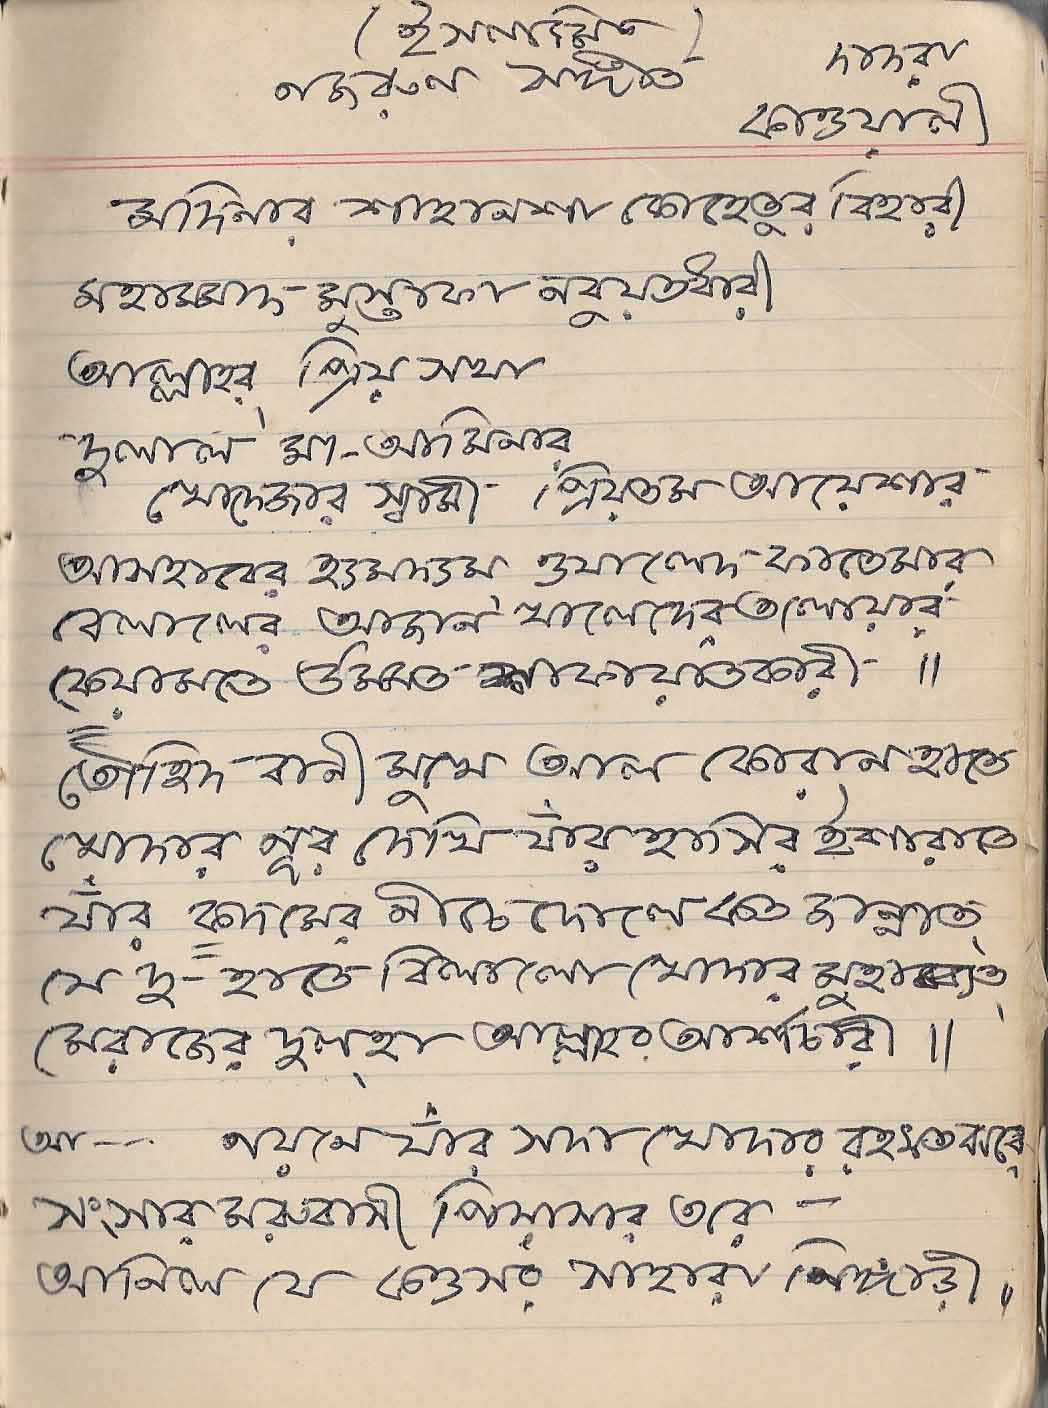 ( ইসলামিক )
নজরুল সঙ্গীত
দাদরা
কাওয়ালী
মদিনার শাহানশা কোহেতুর বিহারী
মহাম্মাদ মুস্তাফা নবুয়তধারী
আল্লাহর প্রিয় সখা
দুলাল মা-আমিনার
খোদেজার স্বামী প্রিয়তম আয়েশার
আসহাবের হ্যমদ্যম ওয়ালেদ ফাতেমার
বেলালের আজান খালেদের তলোয়ার
কেয়ামতে উম্মত শাফায়াতকারী ॥
তৌহিদ বানী মুখে আল কোরান হাতে
খোদার নূর দেখি যাঁর হাসির ইশারাতে
যাঁর কদমের নীচে দোলে কত জান্নাত
যে দু-হাতে বিলালো খোদার মুহাব্বত
মেরাজের দুলহা আল্লাহর আর্শচারী ॥
আ--- নয়নে যাঁর সদা খোদার রহমত ঝরে
সংসার মরুবাসী পিয়াসার তরে -
আনিল যে কওসর সাহারা নিঙ্গাড়ী ॥